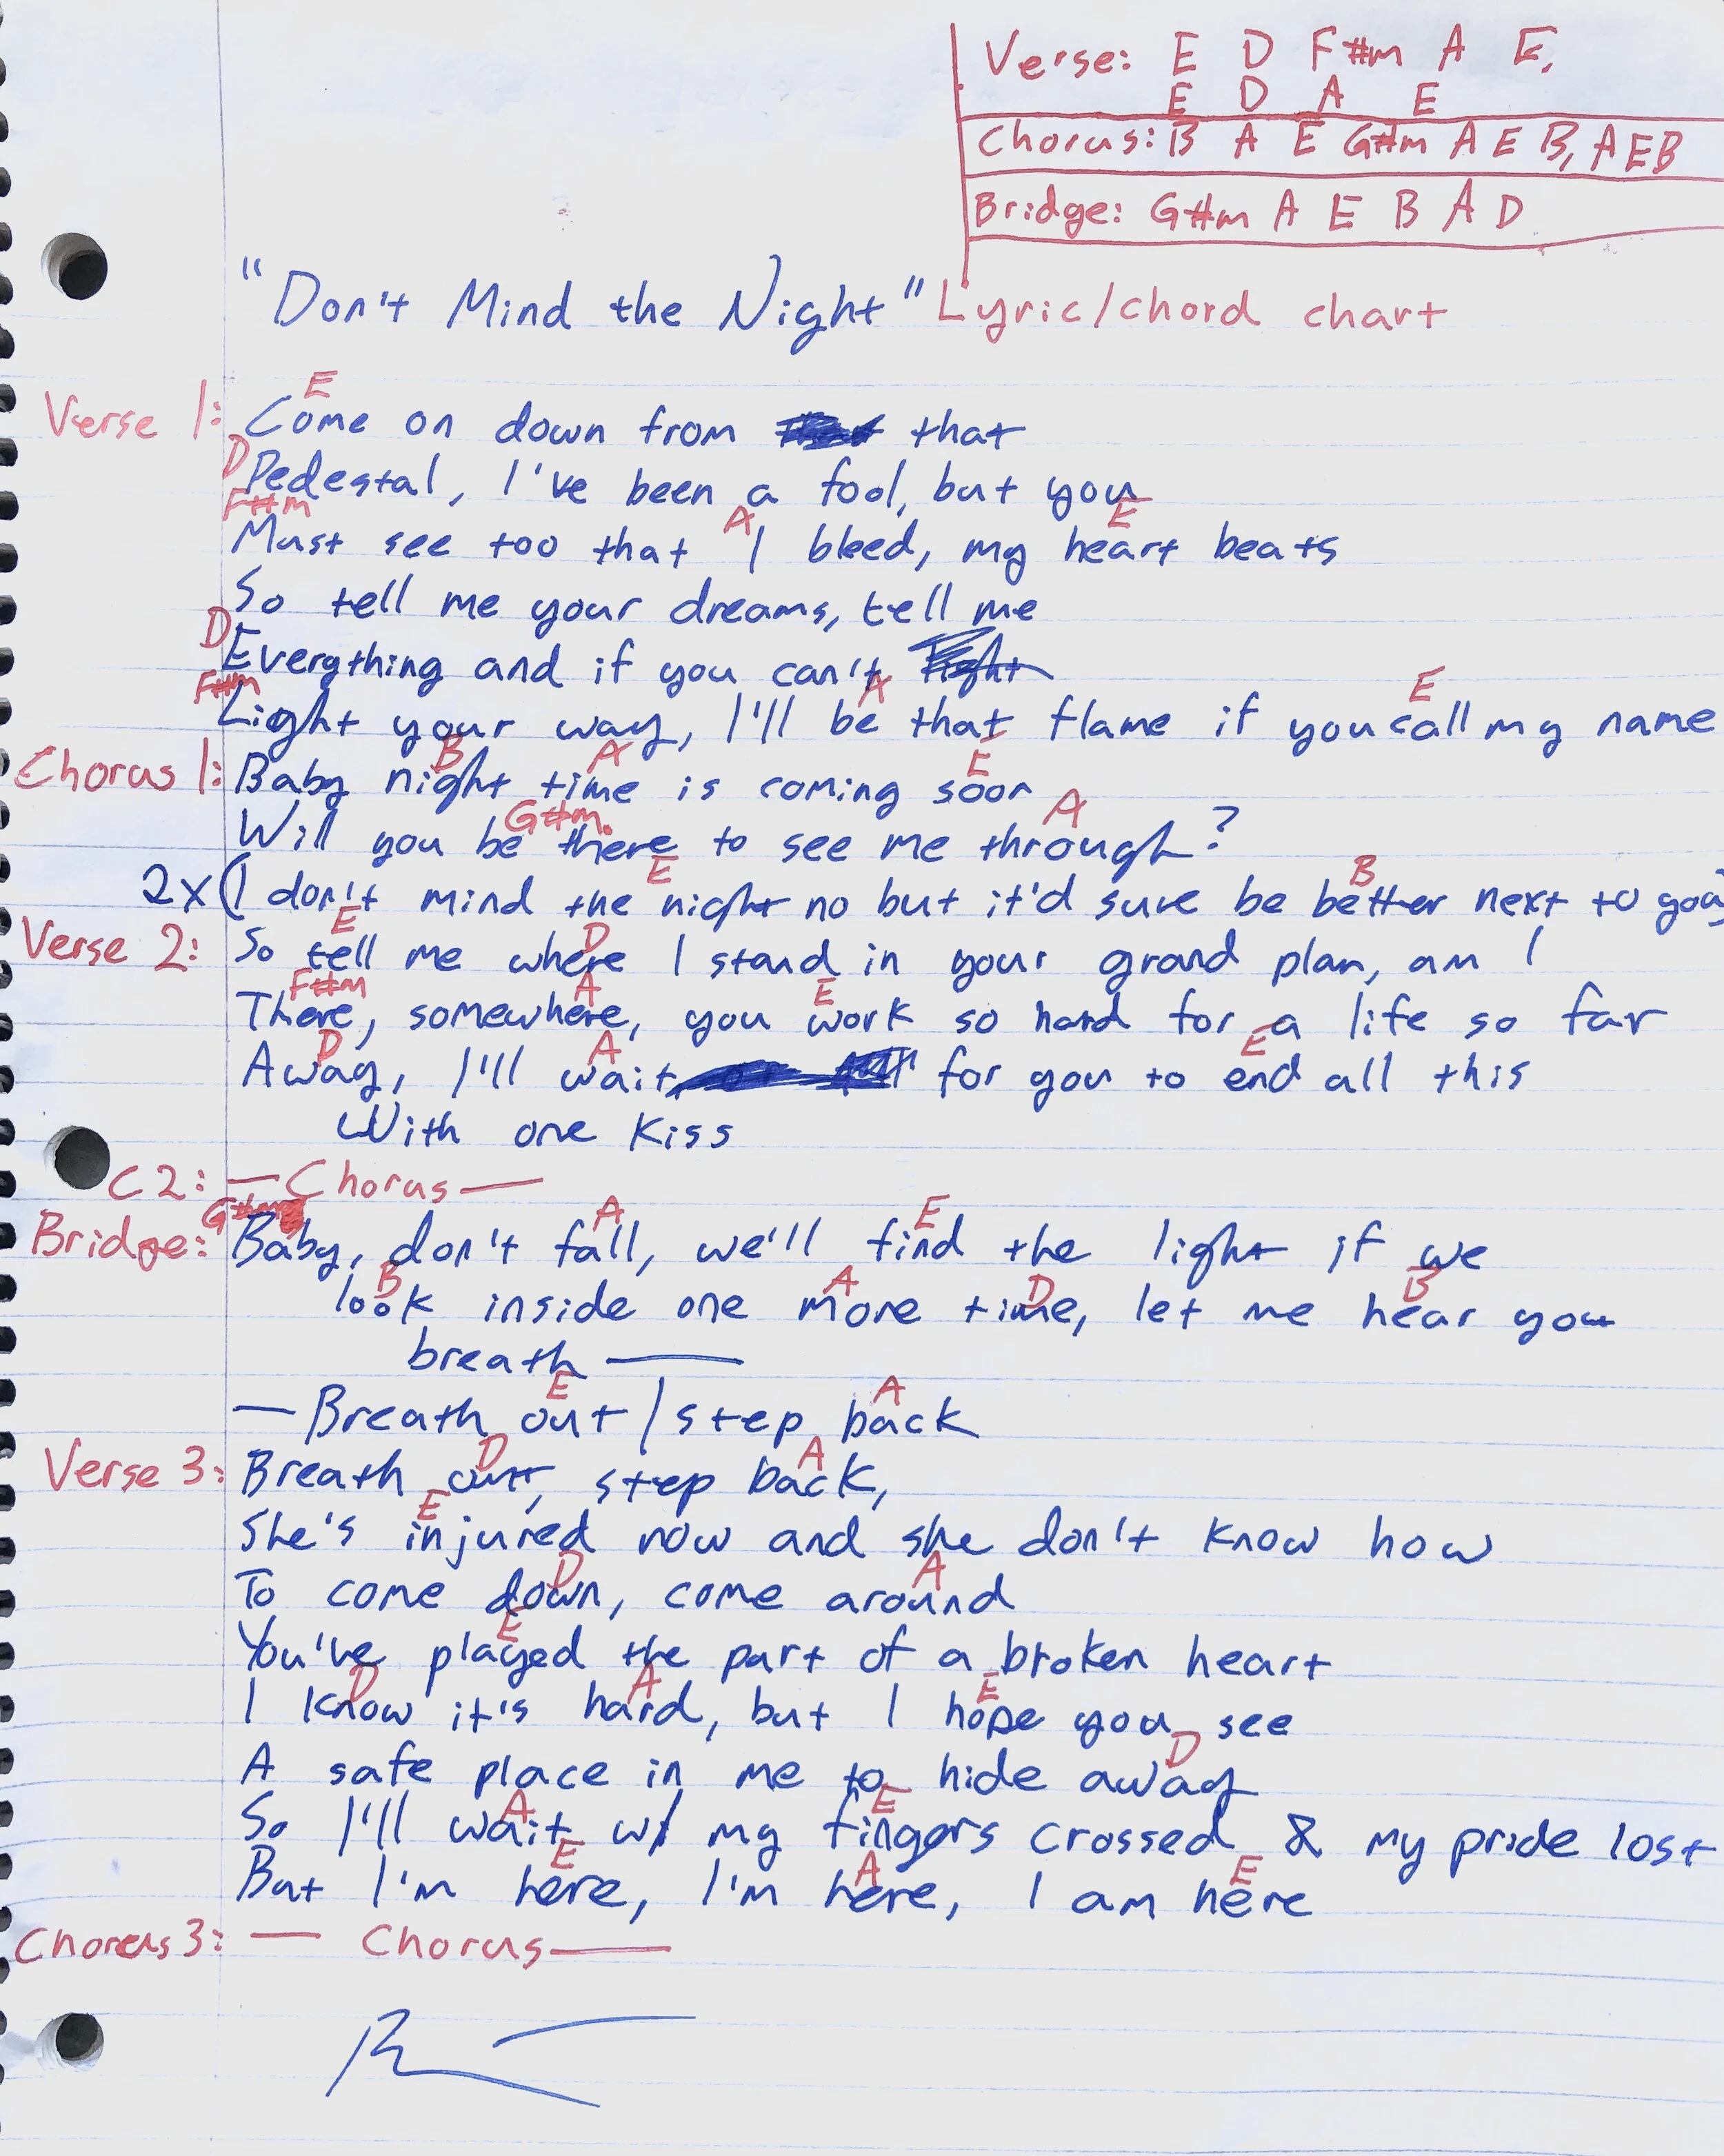 Verse: E D F#m A E,
E D A E
Chorus: B A E G#m A E B, A E B
Bridge: G#m A E B A D
"Don't Mind the Night" Lyric/chord chart
E
Verse 1: Come on down from that
D
Pedestal, I've been a fool, but you
F#m A E
Must see too that I bleed, my heart beats
So tell me your dreams, tell me
D
Everything and if you can't
F#m A E
Light your way, I'll be that flame if you call my name
B A E
Chorus 1: Baby night time is coming soon
G#m. A
Will you be there to see me through?
E B
2x (I don't mind the night no but it'd sure be better next to you)
E D
Verse 2: So tell me where I stand in your grand plan, am I
F#m A E
There, somewhere, you work so hard for a life so far
D A E
Away, I'll wait for you to end all this
With one kiss
C2: — Chorus —
G#m A E
Bridge: Baby, don't fall, we'll find the light if we
B A D B
look inside one more time, let me hear you
breath —
E A
— Breath out / step back
D A
Verse 3: Breath out, step back,
E
She's injured now and she don't know how
D A
To come down, come around
E
You've played the part of a broken heart
D A E
I know it's hard, but I hope you see
D
A safe place in me to hide away
A E
So I'll wait w/ my fingers crossed & my pride lost
E A E
But I'm here, I'm here, I am here
Chorus 3: — Chorus —